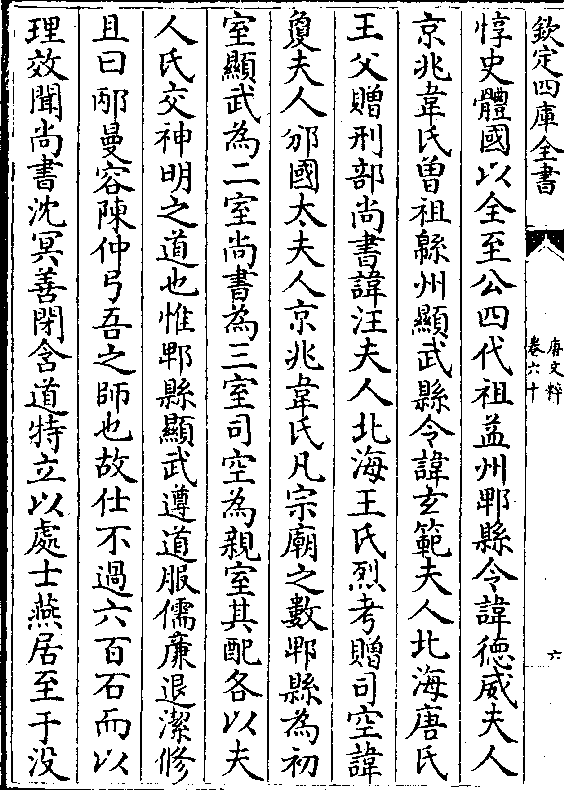 欽定四庫全書
唐文粹
卷六十
六
惇史體國以全至公四代祖益州郫縣令諱德威夫人
京兆韋氏曽祖緜州顯武縣令諱玄範夫人北海唐氏
王父贈刑部尚書諱汪夫人北海王氏烈考贈司空諱
夐夫人邠國太夫人京兆韋氏凡宗廟之數郫縣為初
室顯武為二室尚書為三室司空為親室其配各以夫
人氏交神明之道也惟郫縣顯武遵道服儒亷退潔修
且曰邴曼容陳仲弓吾之師也故仕不過六百石而以
理效聞尚書沈冥善閉含道特立以處士燕居至于没